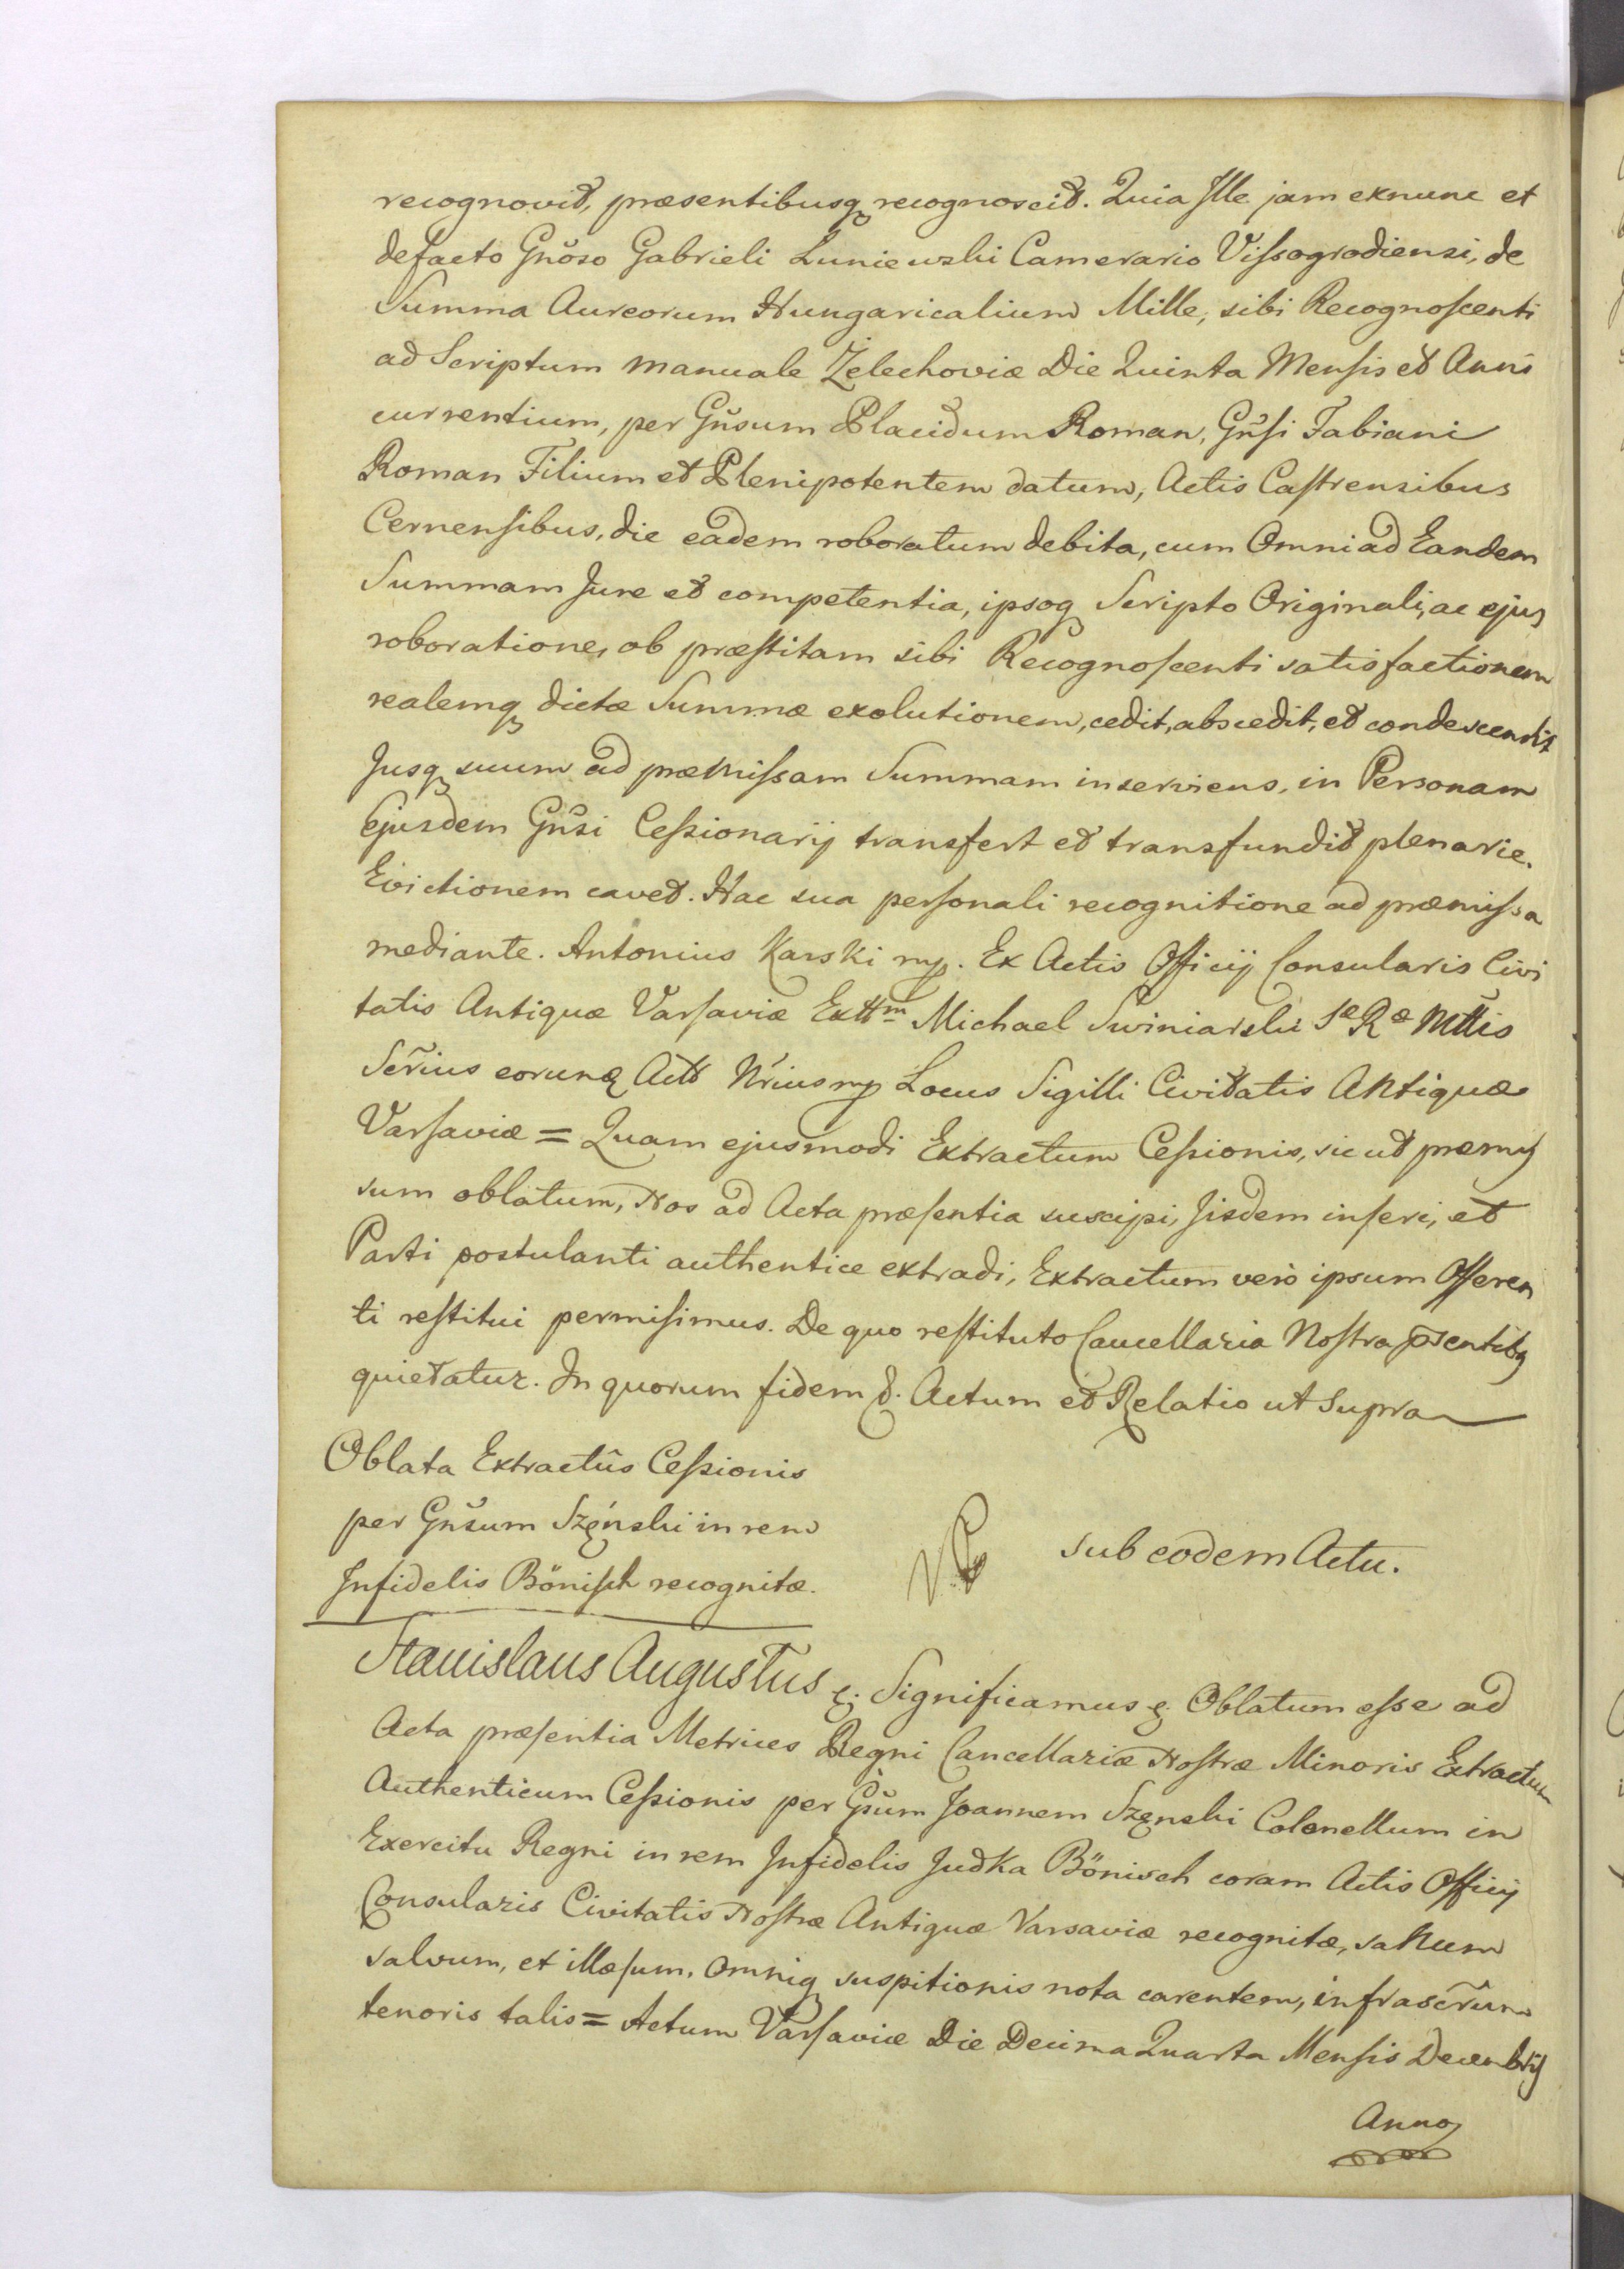 recognovit, præsentibusq recognoscit. Quia Ille jam exnunc et
defacto Gnõso Gabrieli Luniewski Camerario Vissogrodiensi, de
Summa Aureorum Hungaricalium Mille, sibi Recognoscenti
ad Scriptum manuale Żelechoviæ Die Quinta Mensis et Anni
currentium, per Gnũsum Placidum Roman, Gnũsi Fabiani
Roman Filium et Plenipotentem datum, Actis Castrensibus
Cernensibus, die eadem roboratum debita, cum Omni ad Eandem
Summam Jure et competentia, ipsoq Scripto Originali, ac ejus
roboratione, ob præstitam sibi Recognoscenti satisfactionem
realemq dictæ Summæ exolutionem, cedit, abscedit, et condescendit
Jusq suum ad præmissam Summam inserviens, in Personam
Ejusdem Gnũsi Cessionarij transfert et transfundit plenarie.
Evictionem cavet. Hac sua personali recognitione ad præmissa
mediante. Antonius Karski mp. Ex Actis Officij Consularis Civi
tatis Antiquæ Varsaviæ Extt͞m Michael Swiniarski Sæ Ræ Mttis
Sẽrius eorunq Actt Nr̃ius mp Locus Sigilli Civitatis Antiquæ
Varsaviæ = Quam ejusmodi Extractum Cessionis, sic ut præmis
sum oblatum, Nos ad Acta præsentia suscipi, Jisdem inseri, et
Parti postulanti authentice extradi, Extractum verò ipsum Offeren
ti restitui permisimus. De quo restituto Cancellaria Nostra p̃sentibq
quietatur. In quorum fidem &. Actum et Relatio ut Supra
Oblata Extractûs Cessionis
per Gnũsum Szęński in rem
Infidelis Bönisch recognitæ.
sub eodem Actu.
Stanislaus Augustus &. Significamus &. Oblatum esse ad
Acta præsentia Metrices Regni Cancellariæ Nostræ Minoris Extractum
Authenticum Cessionis per Gsũm Joannem Szęnski Colonellum in
Exercitu Regni in rem Infidelis Judka Bönisch coram Actis Officij
Consularis Civitatis Nostræ Antiquæ Varsaviæ recognitæ, sanum
salvum, et illæsum, omniq suspitionis nota carentem, infrascr̃um
tenoris talis = Actum Varsaviæ Die Decima Quarta Mensis Decembris
Anno